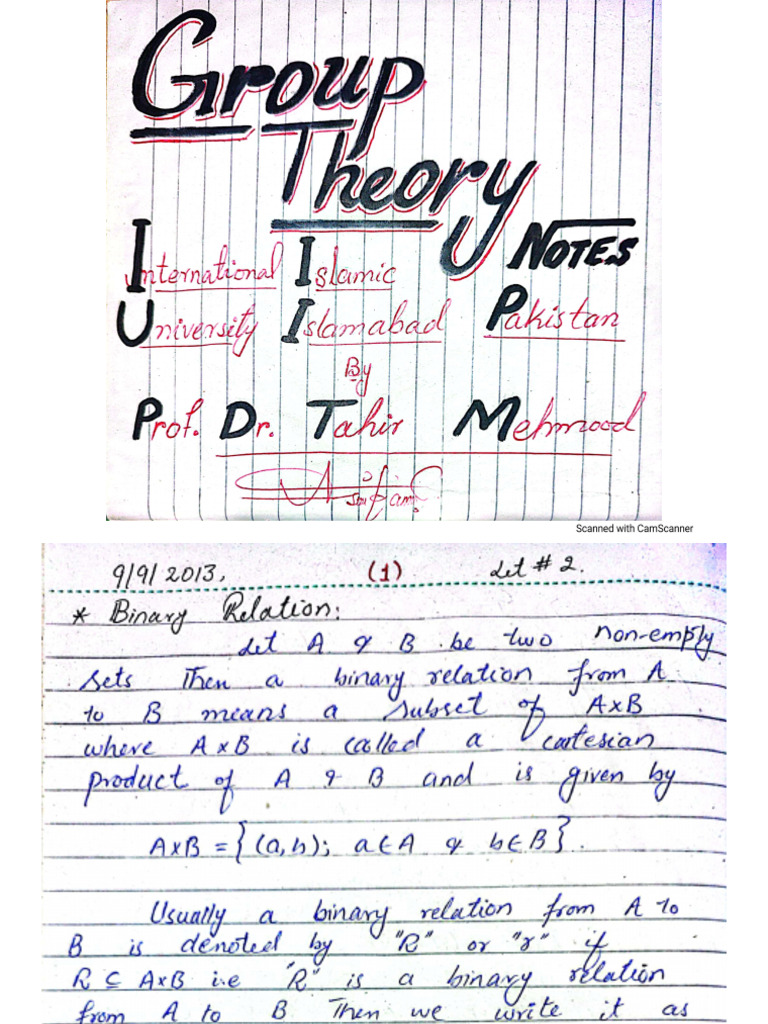 Group
Theory
NOTES
International Islamic
University Islamabad Pakistan
By
Prof. Dr. Tahir Mehmood
Scanned with CamScanner
9/9/2013, (1) Lct # 2.
* Binary Relation:
Let A & B be two non-empty
sets Then a binary relation from A
to B means a subset of A×B
where A×B is called a cartesian
product of A & B and is given by
A×B = {(a,b); a∈A & b∈B}.
Usually a binary relation from A to
B is denoted by "R" or "r" if
R ⊆ A×B i.e "R" is a binary relation
from A to B Then we write it as